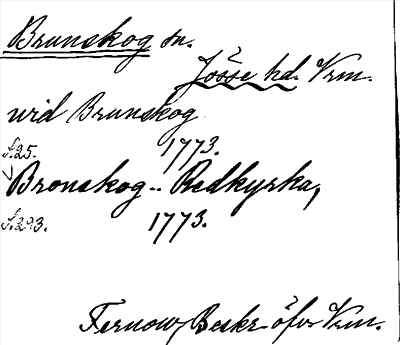 Brunskog sn.
Jösse hd. Vrm.
wid Brunskog
s.25. 1773.
Bronskog-Redkyrka,
s.293. 1773.
Fernow, Beskr. öfver Vrm.